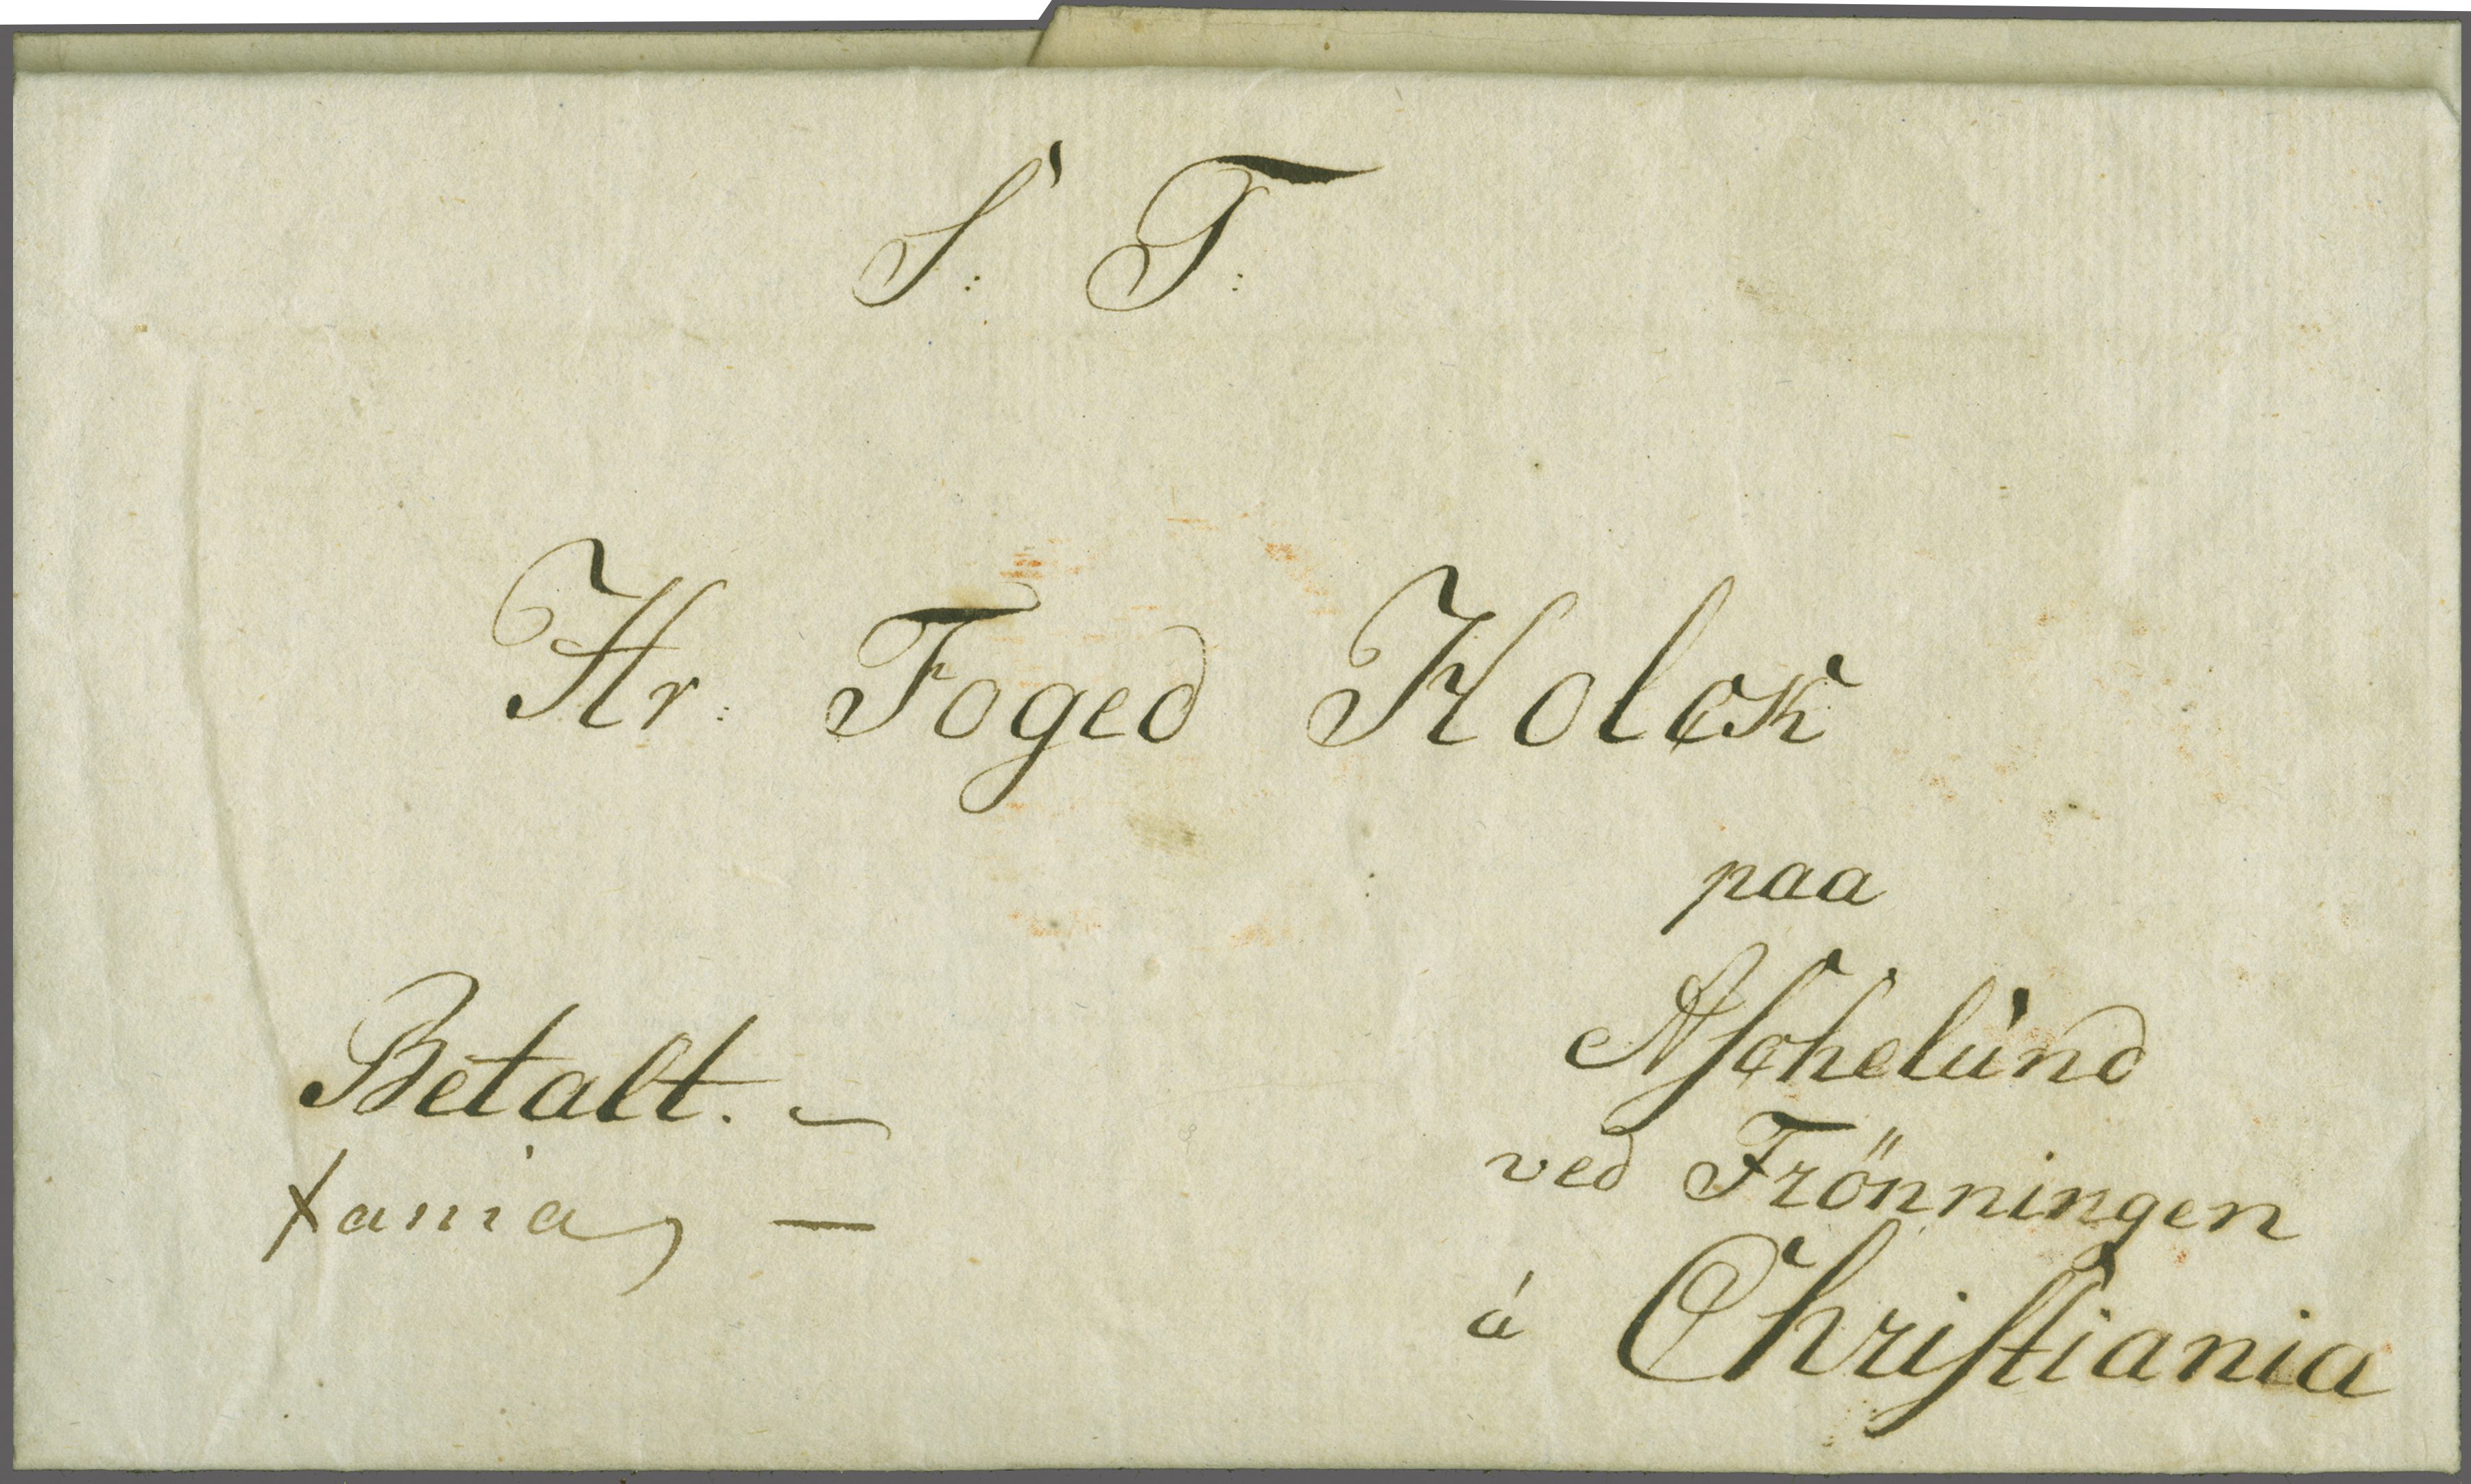 S: T:
Hr: Foged Holck
paa
Aschelund
ved Frönningen
á Christiania
Betalt. –
Xania, —